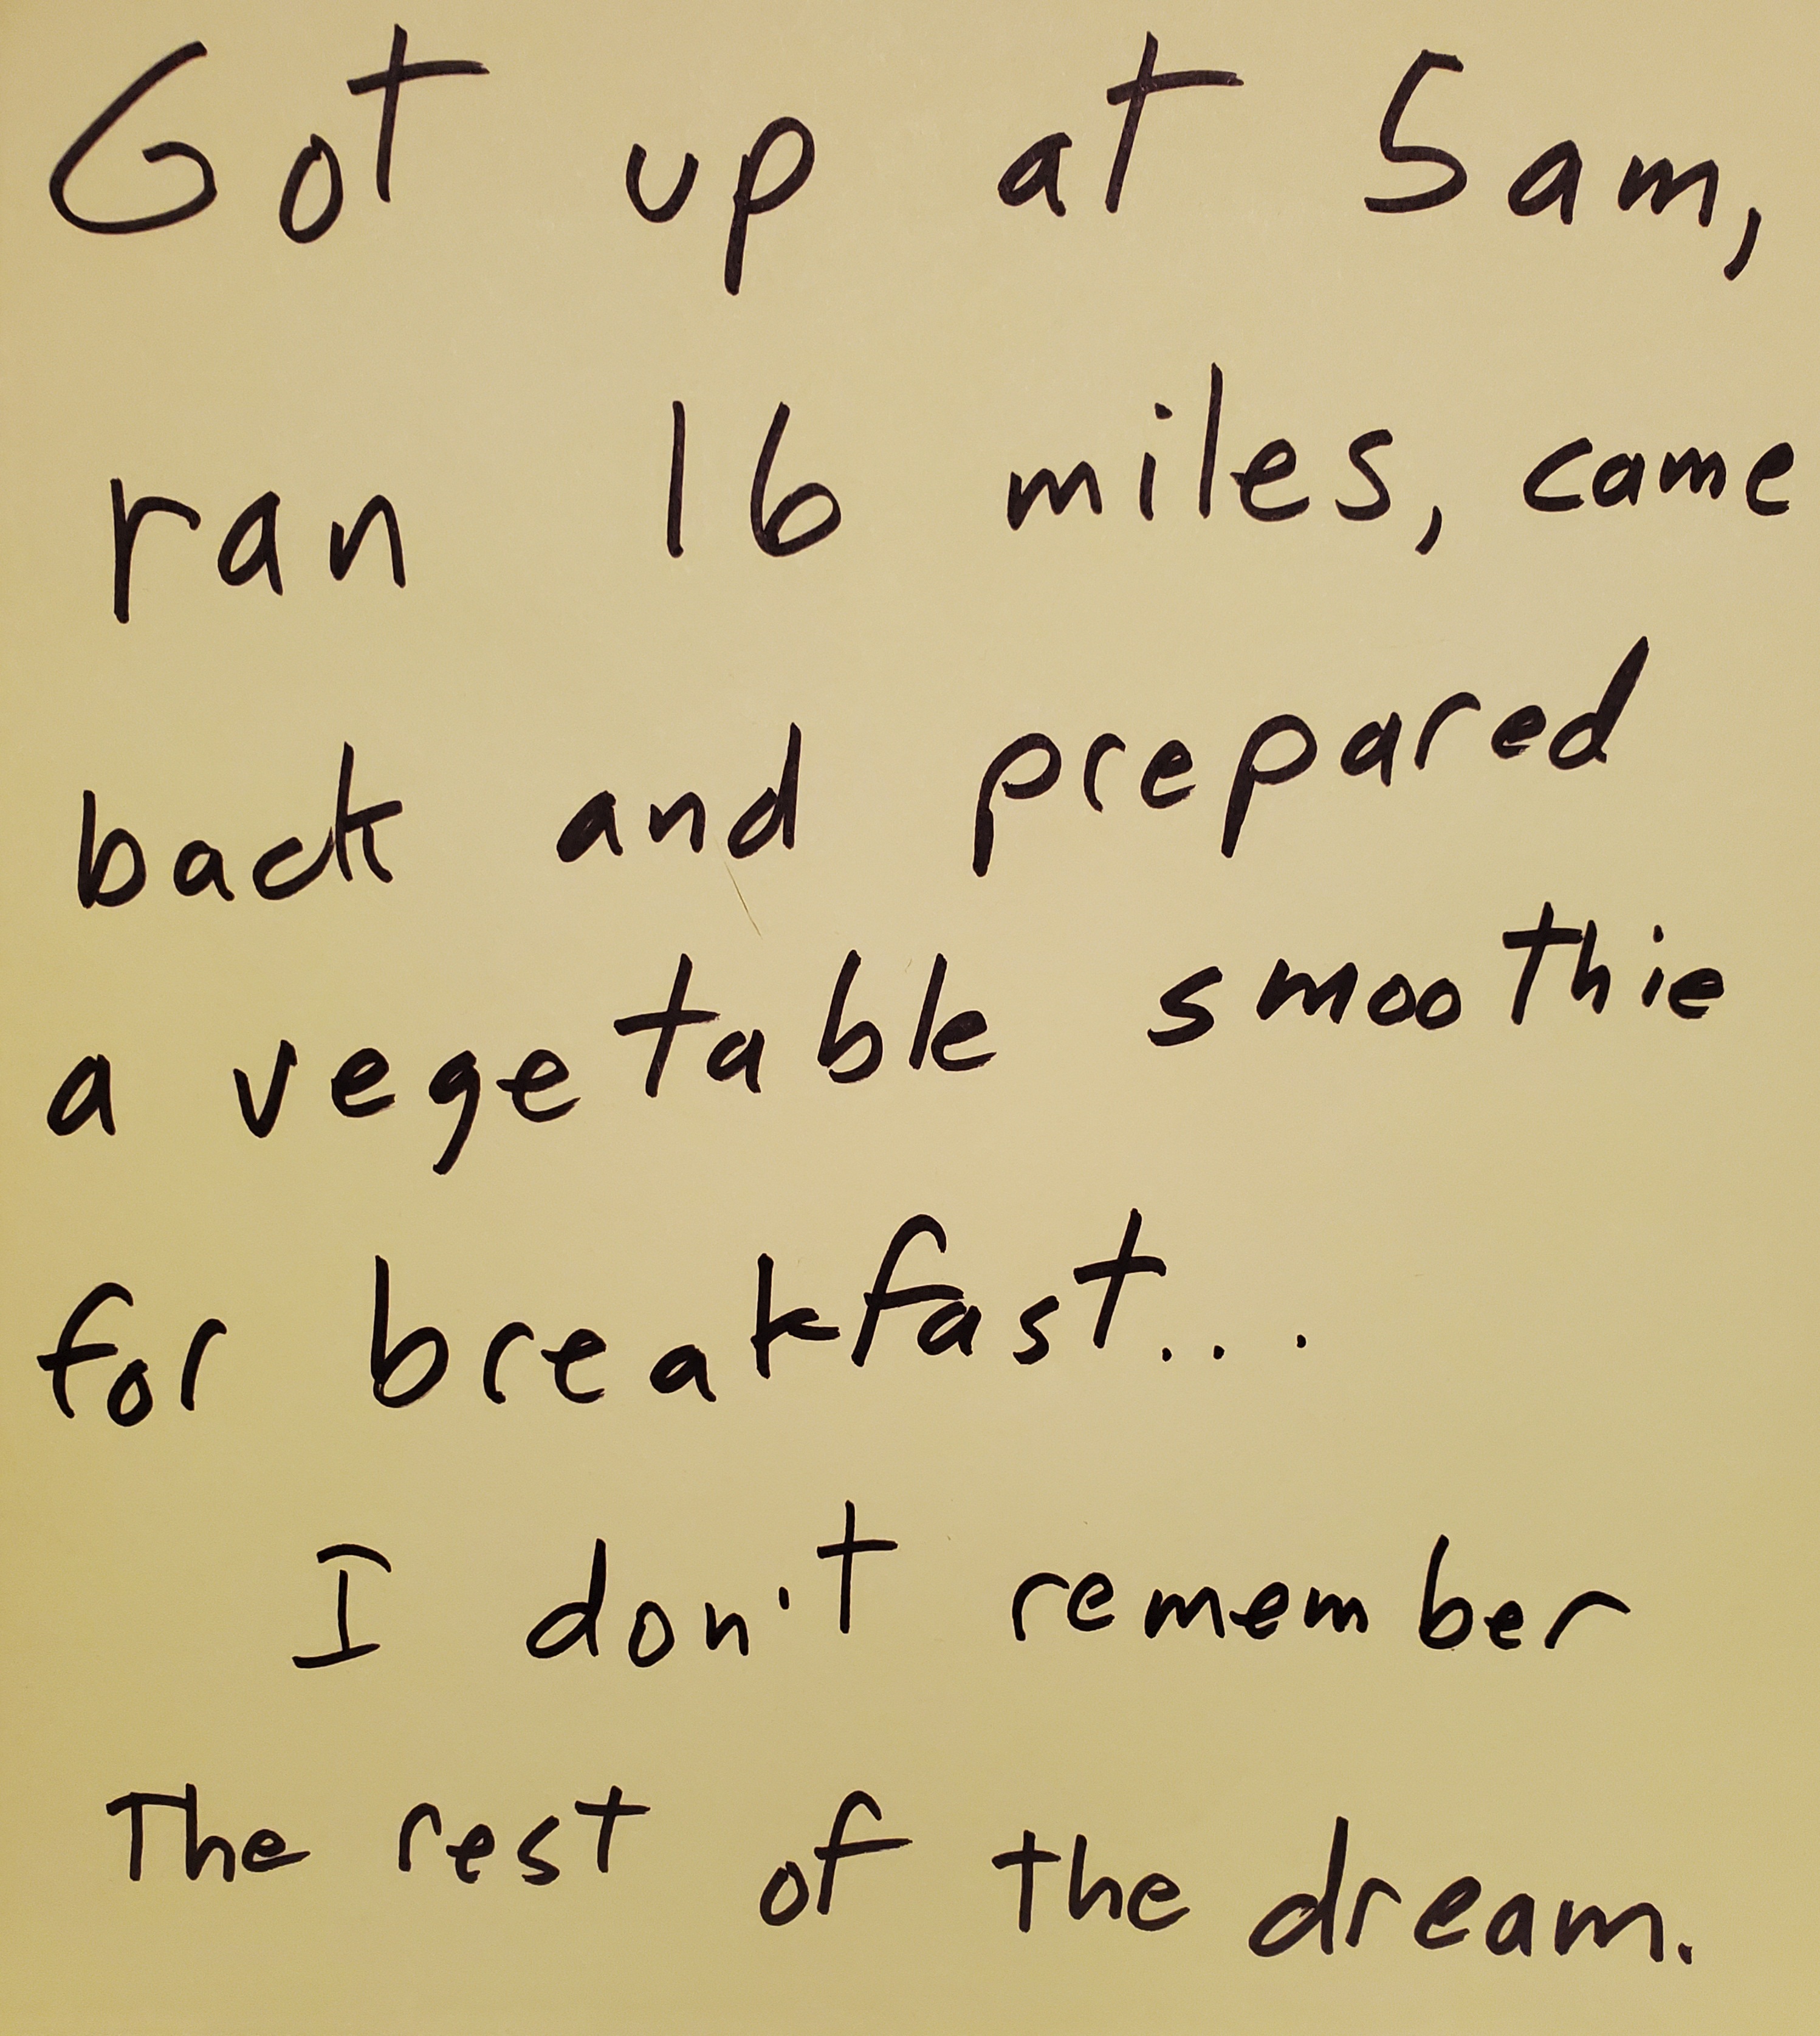 Got up at 5am,
ran 16 miles, came
back and prepared
a vegetable smoothie
for breakfast...
I don't remember
The rest of the dream.